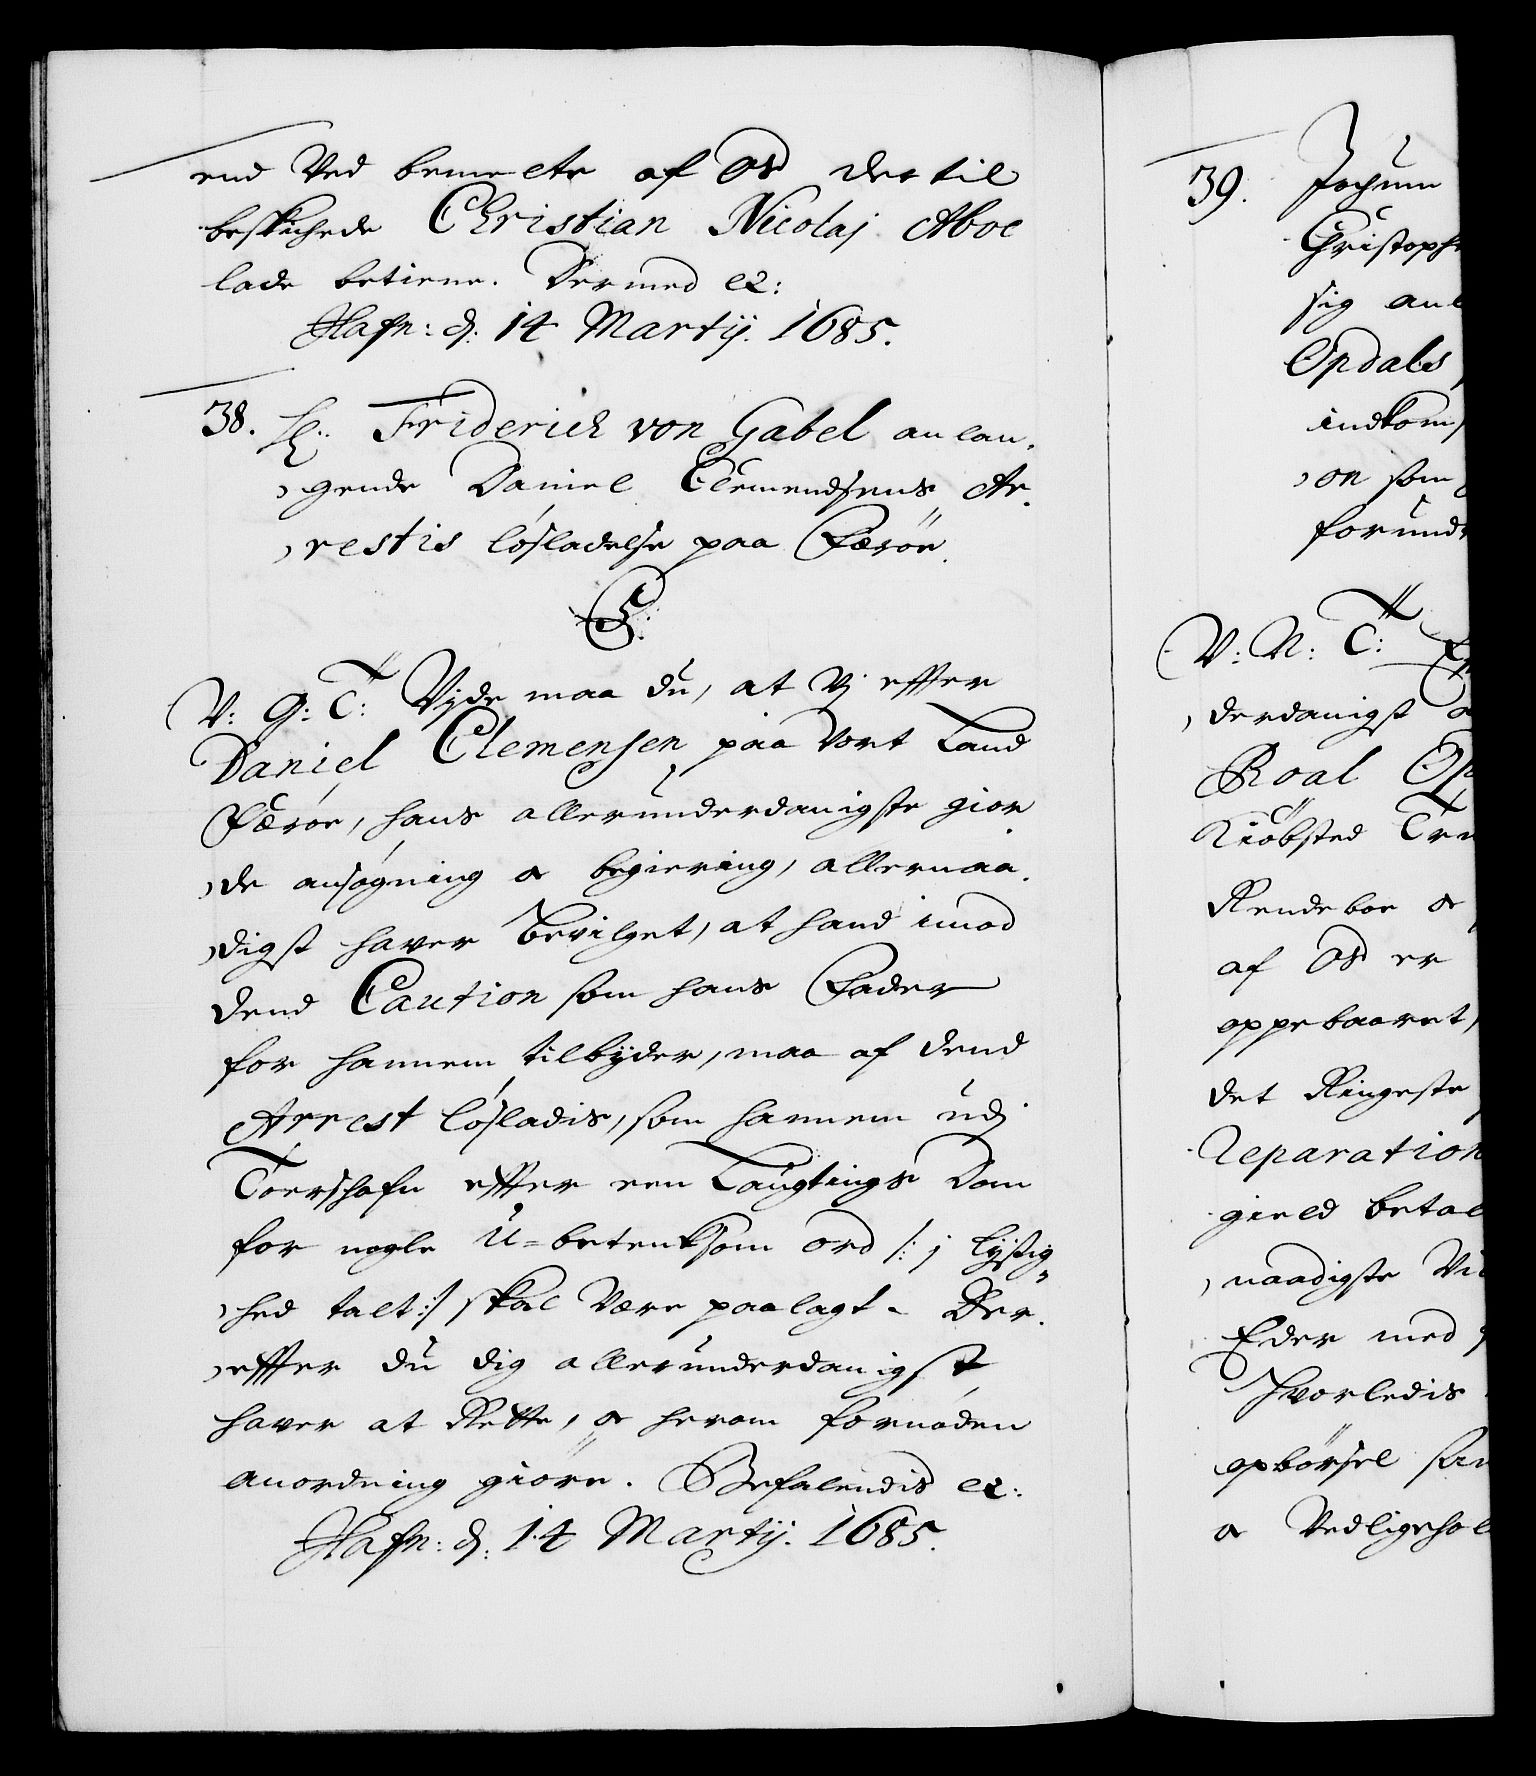 end Ved bemelte af Os dertil
beskichede Christian Nicolaj Aboe
lade betiene. Dermed etc:
Hafn: d: 14 Martij. 1685.
38. Friderich von Gabel anlan-
gende Daniel Clemendsens Ar-
restis løsladelse paa Færøe.
C5.
V: G: T: Vide maa du, at Vj effter
Daniel Clemensen paa Vort Land
Færøe, hans allerunderdanigste gior-
de ansøgning og begiering, allernaa-
digst haver bevilget, at hand imod
dend Caution som hans Fader
for hannem tilbyder, maa af dend
Arrest løsladis, som hannem udj
Torshafn effter een Laugtings Dom
for nogle U=betenksom ord /: j lystig-
hed talt :/ skal Være paalagt. Der-
effter du dig allerunderdanigst
haver at Rette, og herom fornøden
anordning giøre. Befalendis etc:
Hafn: d: 14 Martij. 1685.
39. Jochum
Christoph
sig anl
Opdals
indkom
on som
forund
V: N: T:
derdanigst
Roal Op
Kiøbsted Tr
Rendeboe og
af Os er
oppebaaret,
det Ringeste
Reparation
gield betal
naadigste Vi
Eder med
hvorledis
opbørsel
og Vedligehol